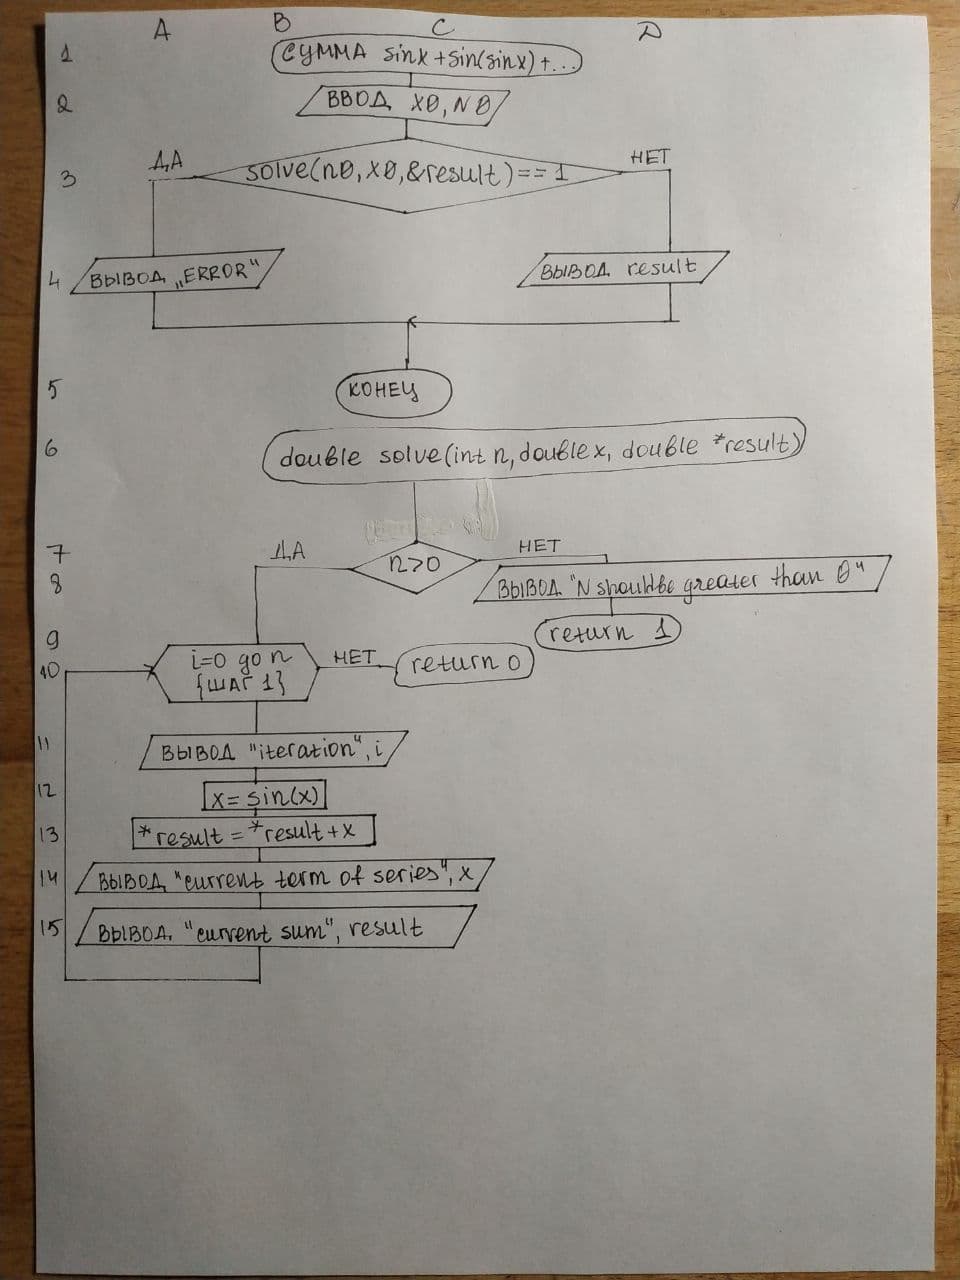 A B C D
1 СУММА sinx+sin(sinx)+...
2 ВВОД X0, N0
ДА НЕТ
3 solve(n0, x0, &result)==1
4 ВЫВОД „ERROR“ ВЫВОД result
5 КОНЕЦ
6 double solve(int n, double x, double *result)
7 ДА n>0 НЕТ
8 ВЫВОД "N should be greater than 0"
9 return 1
10 i=0 до n НЕТ return 0
{ШАГ 1}
11 ВЫВОД "iteration", i
12 x= sin(x)
13 *result = *result+x
14 ВЫВОД "current term of series", x
15 ВЫВОД "current sum", result